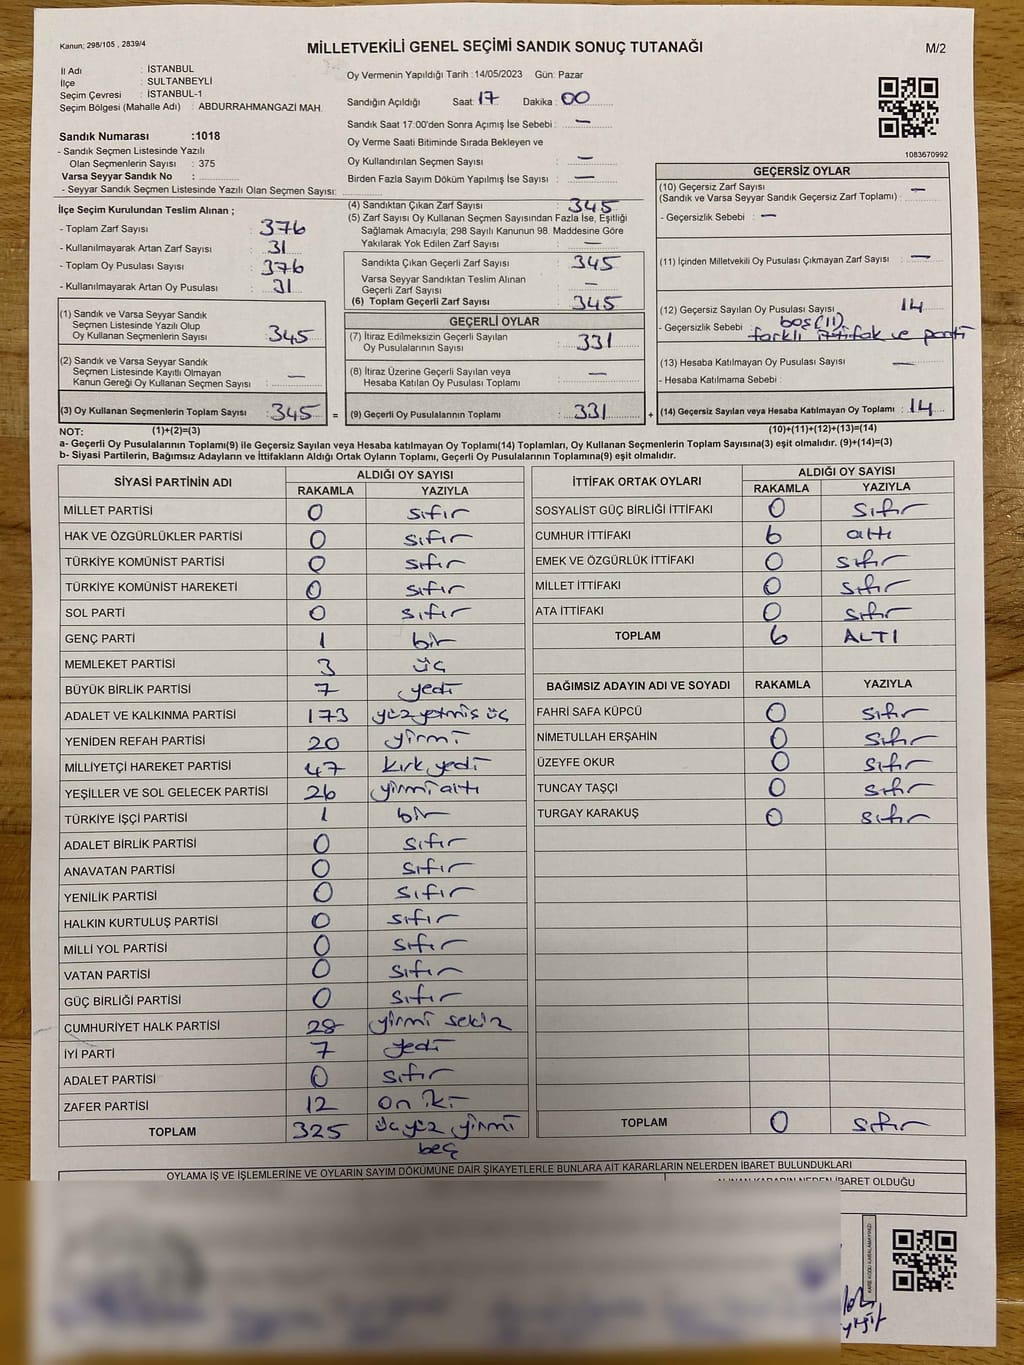 Kanun; 298/105 , 2839/4
MİLLETVEKİLİ GENEL SEÇİMİ SANDIK SONUÇ TUTANAĞI
M/2
İl Adı : İSTANBUL
İlçe : SULTANBEYLİ
Seçim Çevresi : İSTANBUL-1
Seçim Bölgesi (Mahalle Adı) : ABDURRAHMANGAZİ MAH.
Sandık Numarası :1018
- Sandık Seçmen Listesinde Yazılı
Olan Seçmenlerin Sayısı : 375
Varsa Seyyar Sandık No :
- Seyyar Sandık Seçmen Listesinde Yazılı Olan Seçmen Sayısı:
Oy Vermenin Yapıldığı Tarih :14/05/2023 Gün: Pazar
Sandığın Açıldığı Saat: 17 Dakika : 00
Sandık Saat 17:00'den Sonra Açımış İse Sebebi : —
Oy Verme Saati Bitiminde Sırada Bekleyen ve
Oy Kullandırılan Seçmen Sayısı : —
Birden Fazla Sayım Döküm Yapılmış İse Sayısı : —
1083670992
İlçe Seçim Kurulundan Teslim Alınan ;
- Toplam Zarf Sayısı : 376
- Kullanılmayarak Artan Zarf Sayısı : 31
- Toplam Oy Pusulası Sayısı : 376
- Kullanılmayarak Artan Oy Pusulası : 31
(1) Sandık ve Varsa Seyyar Sandık
Seçmen Listesinde Yazılı Olup
Oy Kullanan Seçmenlerin Sayısı : 345
(2) Sandık ve Varsa Seyyar Sandık
Seçmen Listesinde Kayıtlı Olmayan
Kanun Gereği Oy Kullanan Seçmen Sayısı : —
(3) Oy Kullanan Seçmenlerin Toplam Sayısı : 345 =
(4) Sandıktan Çıkan Zarf Sayısı : 345
(5) Zarf Sayısı Oy Kullanan Seçmen Sayısından Fazla İse, Eşitliği
Sağlamak Amacıyla; 298 Sayılı Kanunun 98. Maddesine Göre
Yakılarak Yok Edilen Zarf Sayısı : —
Sandıkta Çıkan Geçerli Zarf Sayısı : 345
Varsa Seyyar Sandıktan Teslim Alınan
Geçerli Zarf Sayısı : —
(6) Toplam Geçerli Zarf Sayısı : 345
GEÇERLİ OYLAR
(7) İtiraz Edilmeksizin Geçerli Sayılan
Oy Pusulalarının Sayısı : 331
(8) İtiraz Üzerine Geçerli Sayılan veya
Hesaba Katılan Oy Pusulası Toplamı : —
(9) Geçerli Oy Pusulalarının Toplamı : 331 +
GEÇERSİZ OYLAR
(10) Geçersiz Zarf Sayısı : —
(Sandık ve Varsa Seyyar Sandık Geçersiz Zarf Toplamı)
- Geçersizlik Sebebi : —
(11) İçinden Milletvekili Oy Pusulası Çıkmayan Zarf Sayısı : —
(12) Geçersiz Sayılan Oy Pusulası Sayısı : 14
- Geçersizlik Sebebi : boş(11)
farklı ittifak ve parti
(13) Hesaba Katılmayan Oy Pusulası Sayısı : —
- Hesaba Katılmama Sebebi :
(14) Geçersiz Sayılan veya Hesaba Katılmayan Oy Toplamı : 14
NOT: (1)+(2)=(3) (10)+(11)+(12)+(13)=(14)
a- Geçerli Oy Pusulalarının Toplamı(9) ile Geçersiz Sayılan veya Hesaba katılmayan Oy Toplamı(14) Toplamları, Oy Kullanan Seçmenlerin Toplam Sayısına(3) eşit olmalıdır. (9)+(14)=(3)
b- Siyasi Partilerin, Bağımsız Adayların ve İttifakların Aldığı Ortak Oyların Toplamı, Geçerli Oy Pusulalarının Toplamına(9) eşit olmalıdır.
SİYASİ PARTİNİN ADI ALDIĞI OY SAYISI
RAKAMLA YAZIYLA
MİLLET PARTİSİ 0 sıfır
HAK VE ÖZGÜRLÜKLER PARTİSİ 0 sıfır
TÜRKİYE KOMÜNİST PARTİSİ 0 sıfır
TÜRKİYE KOMÜNİST HAREKETİ 0 sıfır
SOL PARTİ 0 sıfır
GENÇ PARTİ 1 bir
MEMLEKET PARTİSİ 3 üç
BÜYÜK BİRLİK PARTİSİ 7 yedi
ADALET VE KALKINMA PARTİSİ 173 yüzyetmiş üç
YENİDEN REFAH PARTİSİ 20 yirmi
MİLLİYETÇİ HAREKET PARTİSİ 47 kırk yedi
YEŞİLLER VE SOL GELECEK PARTİSİ 26 yirmialtı
TÜRKİYE İŞÇİ PARTİSİ 1 bir
ADALET BİRLİK PARTİSİ 0 sıfır
ANAVATAN PARTİSİ 0 sıfır
YENİLİK PARTİSİ 0 sıfır
HALKIN KURTULUŞ PARTİSİ 0 sıfır
MİLLİ YOL PARTİSİ 0 sıfır
VATAN PARTİSİ 0 sıfır
GÜÇ BİRLİĞİ PARTİSİ 0 sıfır
CUMHURİYET HALK PARTİSİ 28 yirmi sekiz
İYİ PARTİ 7 yedi
ADALET PARTİSİ 0 sıfır
ZAFER PARTİSİ 12 on iki
TOPLAM 325 üçyüz yirmi
beş
İTTİFAK ORTAK OYLARI ALDIĞI OY SAYISI
RAKAMLA YAZIYLA
SOSYALİST GÜÇ BİRLİĞİ İTTİFAKI 0 sıfır
CUMHUR İTTİFAKI 6 altı
EMEK VE ÖZGÜRLÜK İTTİFAKI 0 sıfır
MİLLET İTTİFAKI 0 sıfır
ATA İTTİFAKI 0 sıfır
TOPLAM 6 ALTI
BAĞIMSIZ ADAYIN ADI VE SOYADI RAKAMLA YAZIYLA
FAHRİ SAFA KÜPCÜ 0 sıfır
NİMETULLAH ERŞAHİN 0 sıfır
ÜZEYFE OKUR 0 sıfır
TUNCAY TAŞÇI 0 sıfır
TURGAY KARAKUŞ 0 sıfır
TOPLAM 0 sıfır
OYLAMA İŞ VE İŞLEMLERİNE VE OYLARIN SAYIM DÖKÜMÜNE DAİR ŞİKAYETLERLE BUNLARA AİT KARARLARIN NELERDEN İBARET BULUNDUKLARI
ALINAN KARARIN NEDEN İBARET OLDUĞU
KARE KODU KARALAMAYINIZ!